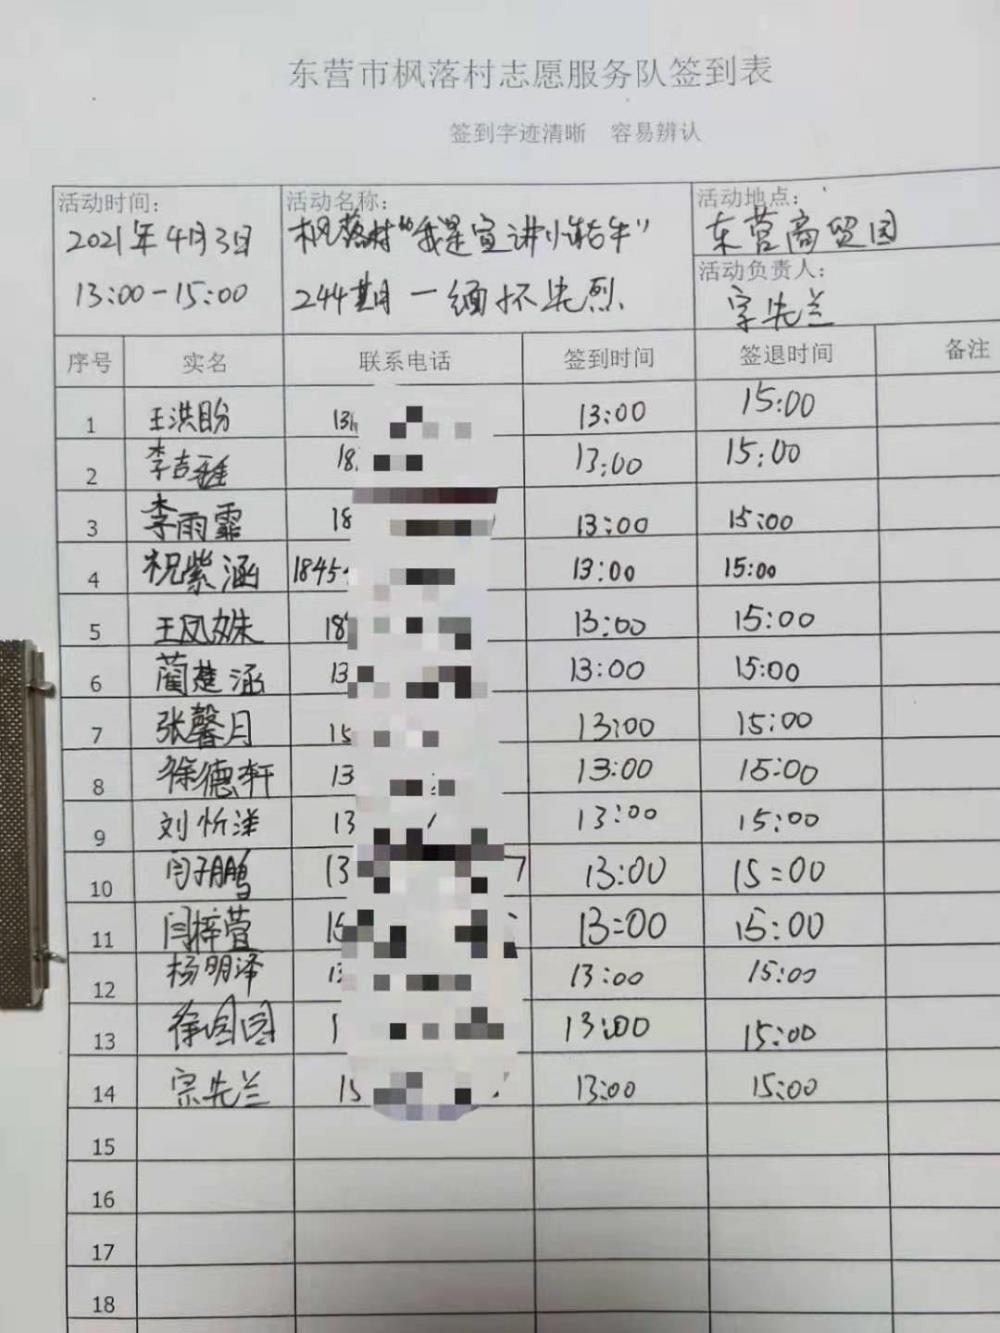 东营市枫落村志愿服务队签到表
签到字迹清晰 容易辨认
活动时间: 活动名称: 活动地点:
2021年4月3日 枫落村"我是宣讲小牛" 东营商贸园
活动负责人:
13:00-15:00 244期—缅怀先烈 宗先兰
序号 实名 联系电话 签到时间 签退时间 备注
1 王洪盼 13 13:00 15:00
2 李吉 18 13:00 15:00
3 李雨霏 18 13:00 15:00
4 祝紫涵 1845 13:00 15:00
5 王凤姝 18 13:00 15:00
6 蔺楚涵 13 13:00 15:00
7 张馨月 15 13:00 15:00
8 徐德轩 13 13:00 15:00
9 刘忻洋 13 13:00 15:00
10 闫子鹏 13 7 13:00 15:00
11 闫梓萱 15 13:00 15:00
12 杨明泽 13 13:00 15:00
13 徐园园 1 13:00 15:00
14 宗先兰 15 13:00 15:00
15
16
17
18